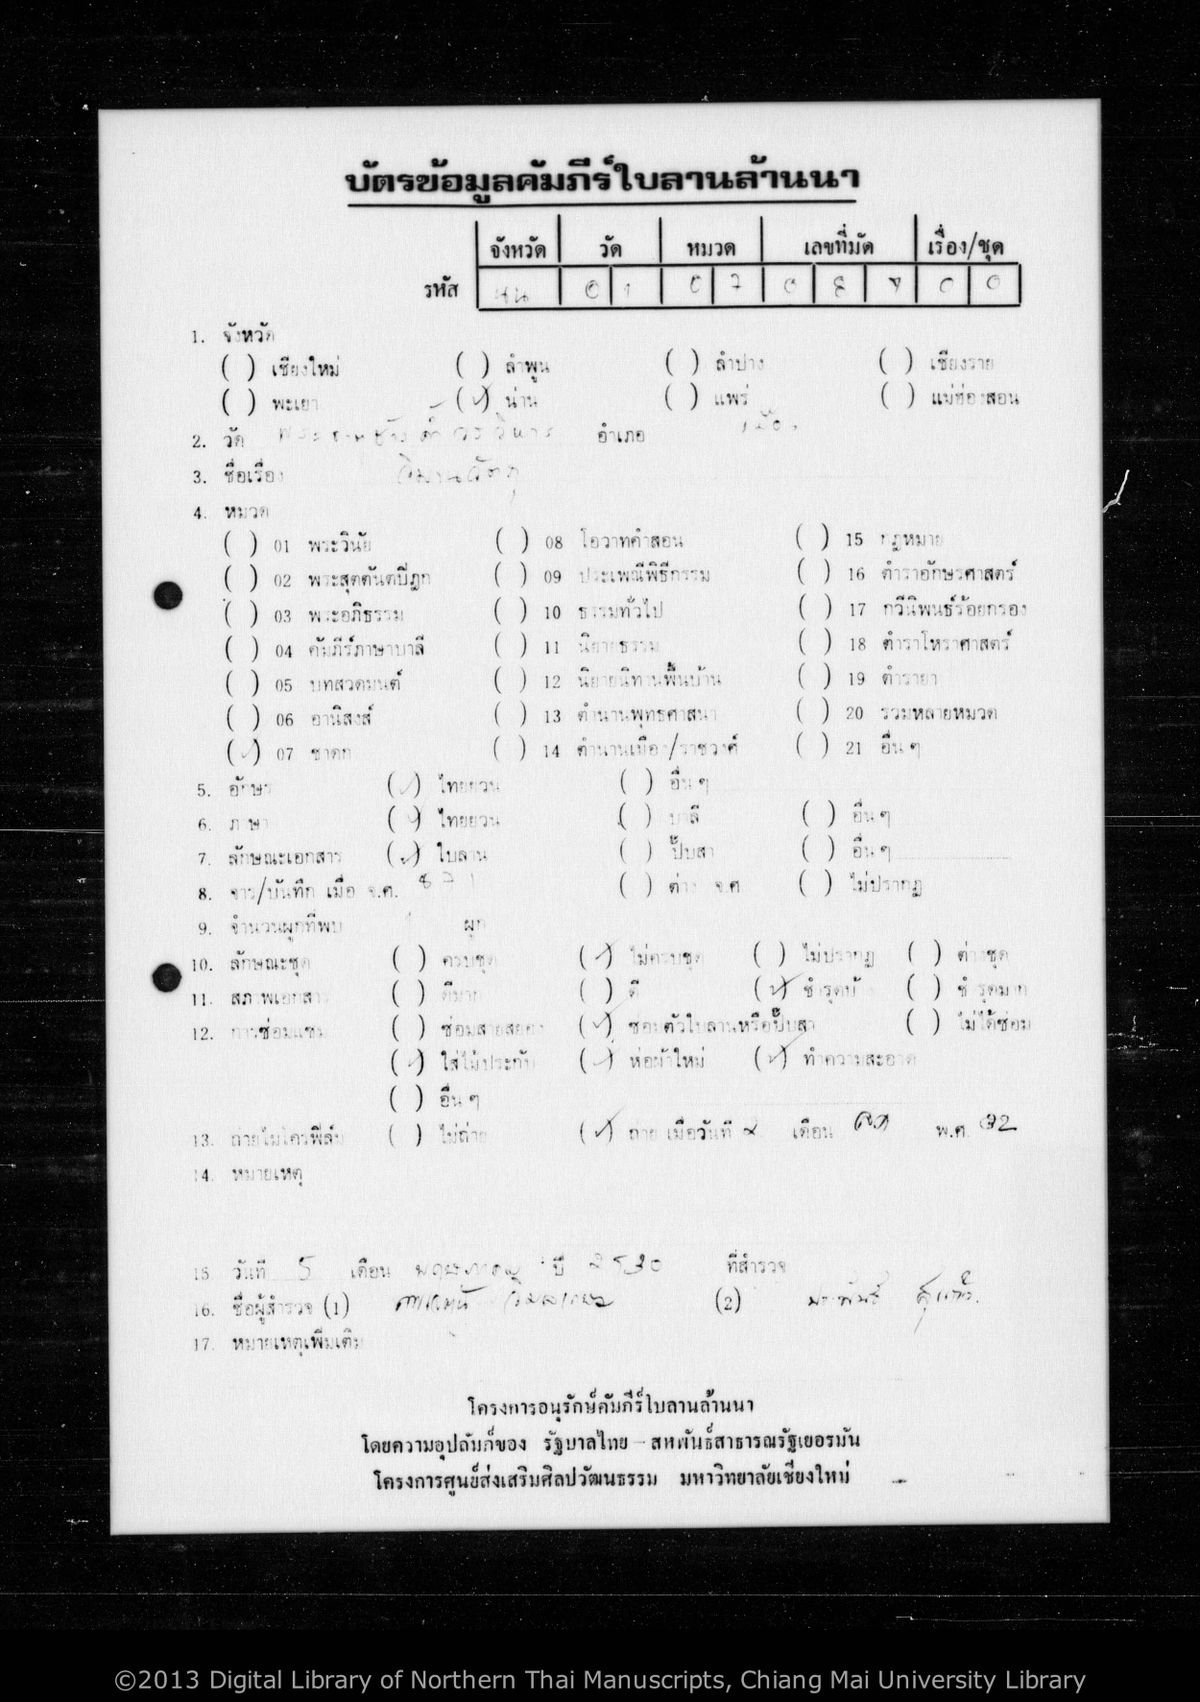 บัตรข้อมูลคัมภีร์ใบลานล้านนา
จังหวัด วัด หมวด เลขที่มัด เรื่อง/ชุด
รหัส นน 01 07 00
1. จังหวัด
( ) เชียงใหม่ ( ) ลำพูน ( ) ลำปาง ( ) เชียงราย
( ) พะเยา (✓) น่าน ( ) แพร่ ( ) แม่ฮ่องสอน
2. วัด พระธาตุช้างค้ำวรวิหาร อำเภอ เมือง
3. ชื่อเรื่อง วิมานวัตถุ
4. หมวด
( ) 01 พระวินัย ( ) 08 โอวาทคำสอน ( ) 15 กฎหมาย
( ) 02 พระสุตตันตปิฎก ( ) 09 ประเพณีพิธีกรรม ( ) 16 ตำราอักษรศาสตร์
( ) 03 พระอภิธรรม ( ) 10 ธรรมทั่วไป ( ) 17 กวีนิพนธ์ร้อยกรอง
( ) 04 คัมภีร์ภาษาบาลี ( ) 11 นิยายธรรม ( ) 18 ตำราโหราศาสตร์
( ) 05 บทสวดมนต์ ( ) 12 นิยายนิทานพื้นบ้าน ( ) 19 ตำรายา
( ) 06 อานิสงส์ ( ) 13 ตำนานพุทธศาสนา ( ) 20 รวมหลายหมวด
(✓) 07 ชาดก ( ) 14 ตำนานเมือง/ราชวงศ์ ( ) 21 อื่น ๆ
5. อักษร (✓) ไทยยวน ( ) อื่น ๆ
6. ภาษา (✓) ไทยยวน ( ) บาลี ( ) อื่น ๆ
7. ลักษณะเอกสาร (✓) ใบลาน ( ) ปั๊บสา ( ) อื่น ๆ
8. จาร/บันทึก เมื่อ จ.ศ. ( ) ต่าง จ.ศ ( ) ไม่ปรากฏ
9. จำนวนผูกที่พบ 1 ผูก
10. ลักษณะชุด ( ) ครบชุด (✓) ไม่ครบชุด ( ) ไม่ปรากฏ ( ) ต่างชุด
11. สภาพเอกสาร ( ) ดีมาก ( ) ดี (✓) ชำรุดบ้าง ( ) ชำรุดมาก
12. การซ่อมแซม ( ) ซ่อมสายสยอง (✓) ซ่อมตัวใบลานหรือปั๊บสา ( ) ไม่ได้ซ่อม
(✓) ใส่ไม้ประกับ (✓) ห่อผ้าใหม่ (✓) ทำความสะอาด
( ) อื่น ๆ
13. ถ่ายไมโครฟิล์ม ( ) ไม่ถ่าย (✓) ถ่าย เมื่อวันที่ ๙ เดือน พ.ศ. 32
14. หมายเหตุ
15 วันที่ 5 เดือน พฤษภาคม ปี 2530 ที่สำรวจ
16. ชื่อผู้สำรวจ (1) (2)
17. หมายเหตุเพิ่มเติม
โครงการอนุรักษ์คัมภีร์ใบลานล้านนา
โดยความอุปถัมภ์ของ รัฐบาลไทย - สหพันธ์สาธารณรัฐเยอรมัน
โครงการศูนย์ส่งเสริมศิลปวัฒนธรรม มหาวิทยาลัยเชียงใหม่
©2013 Digital Library of Northern Thai Manuscripts, Chiang Mai University Library